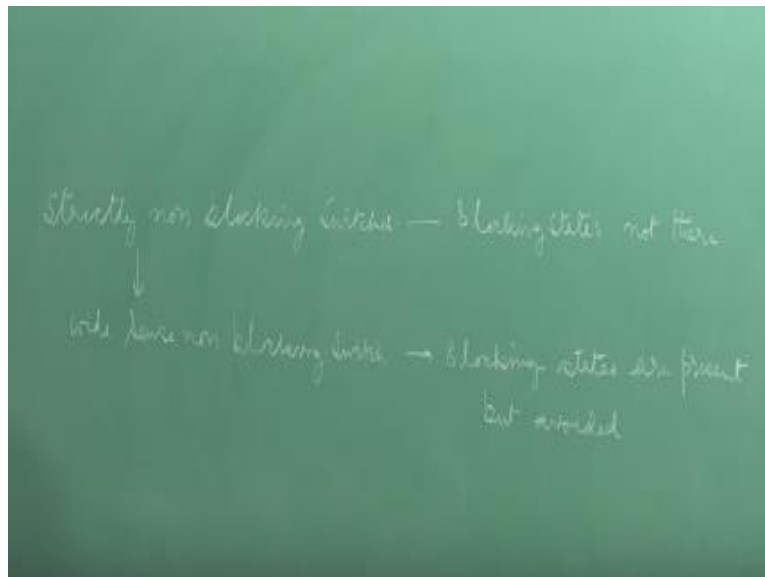 Strictly non blocking Switches — Blocking states not there
↓
wide sense non blocking Switch → Blocking states are present
but avoided